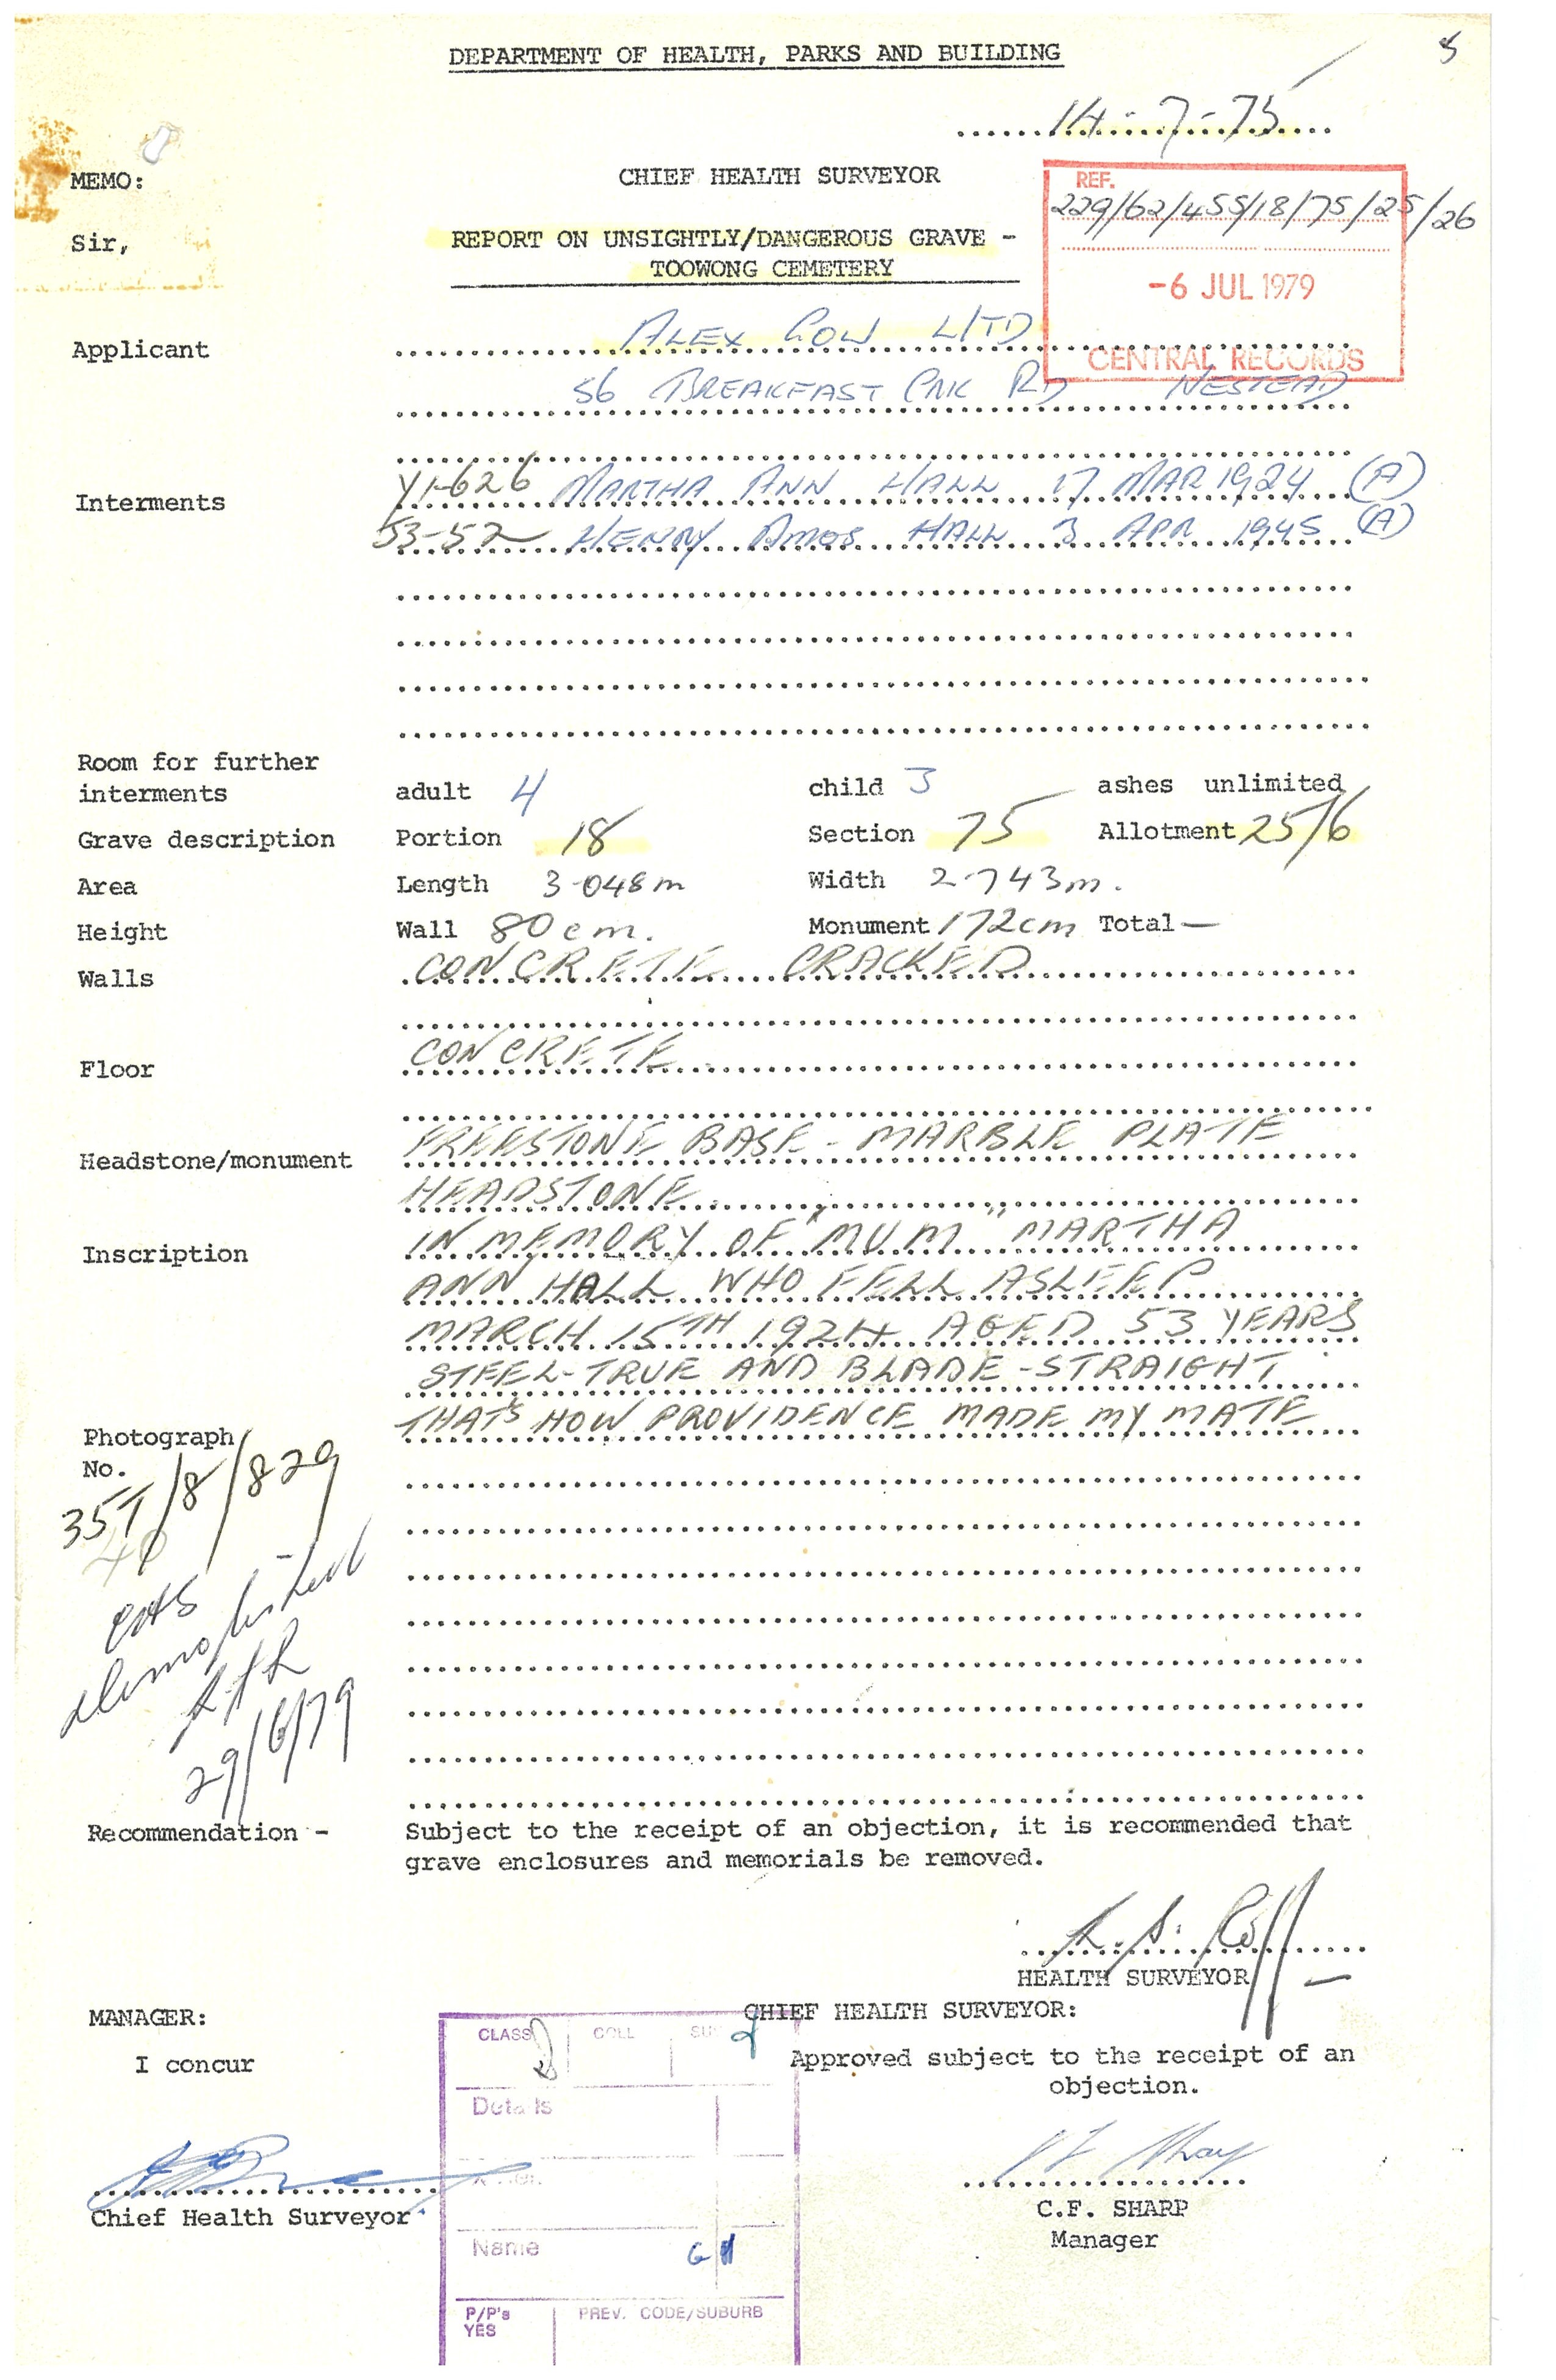 5
DEPARTMENT OF HEALTH, PARKS AND BUILDING
14-7-75
MEMO: CHIEF HEALTH SURVEYOR
REF.
229/62/455/18/75/25/26
Sir, REPORT ON UNSIGHTLY/DANGEROUS GRAVE -
TOOWONG CEMETERY
-6 JUL 1979
CENTRAL RECORDS
Applicant ALEX GOW L/TD
56 BREAKFAST CRK RD NESTEAD
Interments Y1-626 MARTHA ANN HALL 17 MAR 1924 (A)
53-52 HENRY AMOS HALL 3 APR 1945 (A)
Room for further
interments adult 4 child 3 ashes unlimited
Grave description Portion 18 Section 75 Allotment 25/6
Area Length 3.048m Width 2.743m.
Height Wall 80cm. Monument 172cm Total —
Walls CONCRETE CRACKED
Floor CONCRETE
Headstone/monument FREESTONE BASE - MARBLE PLATE
HEADSTONE
Inscription IN MEMORY OF "MUM" MARTHA
ANN HALL WHO FELL ASLEEP
MARCH 15TH 1924 AGED 53 YEARS
STEEL-TRUE AND BLADE-STRAIGHT
THAT'S HOW PROVIDENCE MADE MY MATE
Photograph
No.
35T/8/829
demolished
29/6/79
Recommendation - Subject to the receipt of an objection, it is recommended that
grave enclosures and memorials be removed.
HEALTH SURVEYOR
MANAGER: CHIEF HEALTH SURVEYOR:
I concur Approved subject to the receipt of an
objection.
Chief Health Surveyor
C.F. SHARP
Manager
CLASS COLL
Details
Name GH
P/P's
YES
PREV. CODE/SUBURB